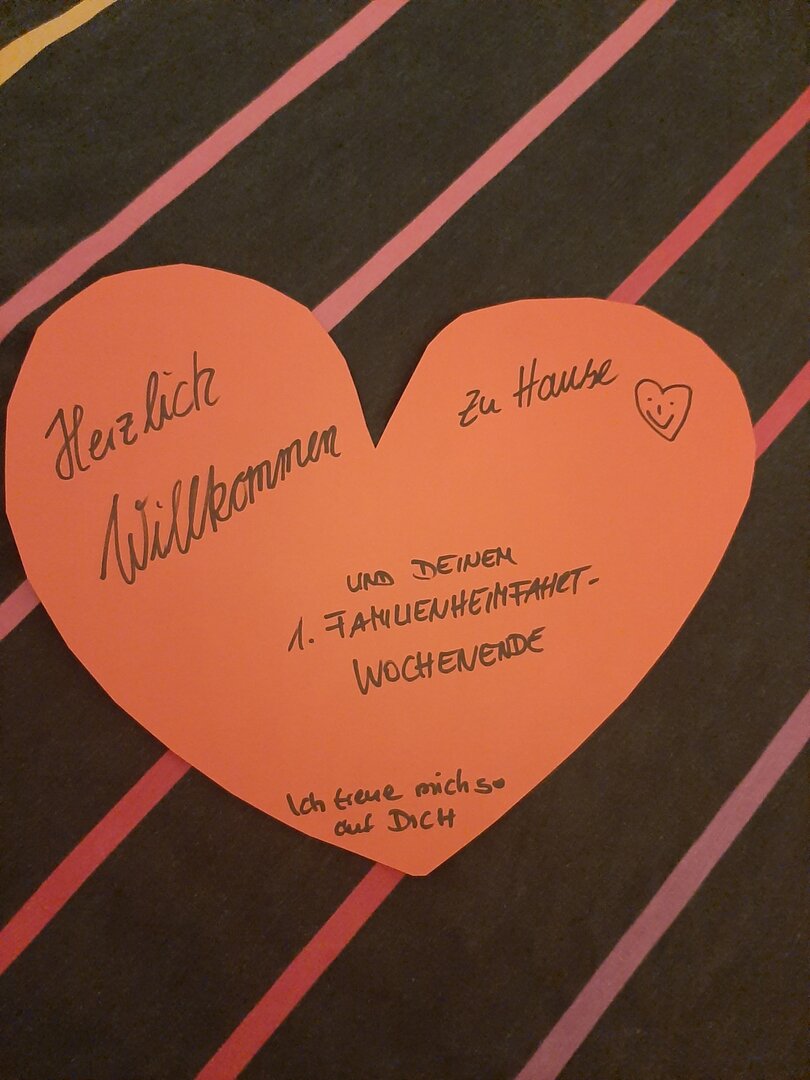 Herzlich
Willkommen
zu Hause
UND DEINEM
1. FAMILIENHEIMFAHRT-
WOCHENENDE
Ich freue mich so
auf DICH